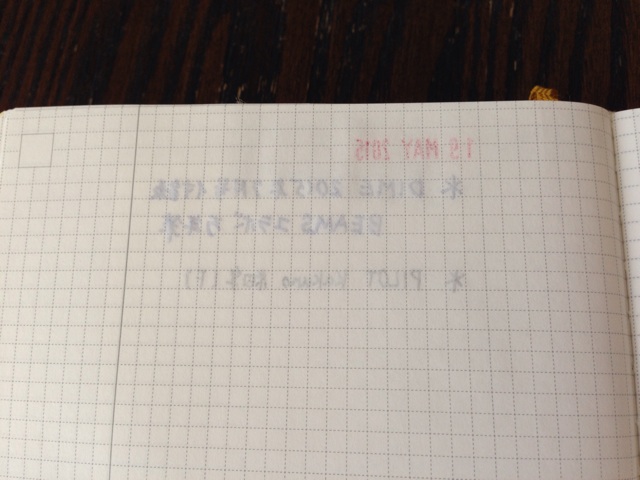 MAY 2015
* DIME 2015年7月号付録
BEAMS コラボ 万年筆
* PILOT Kakuno (F)